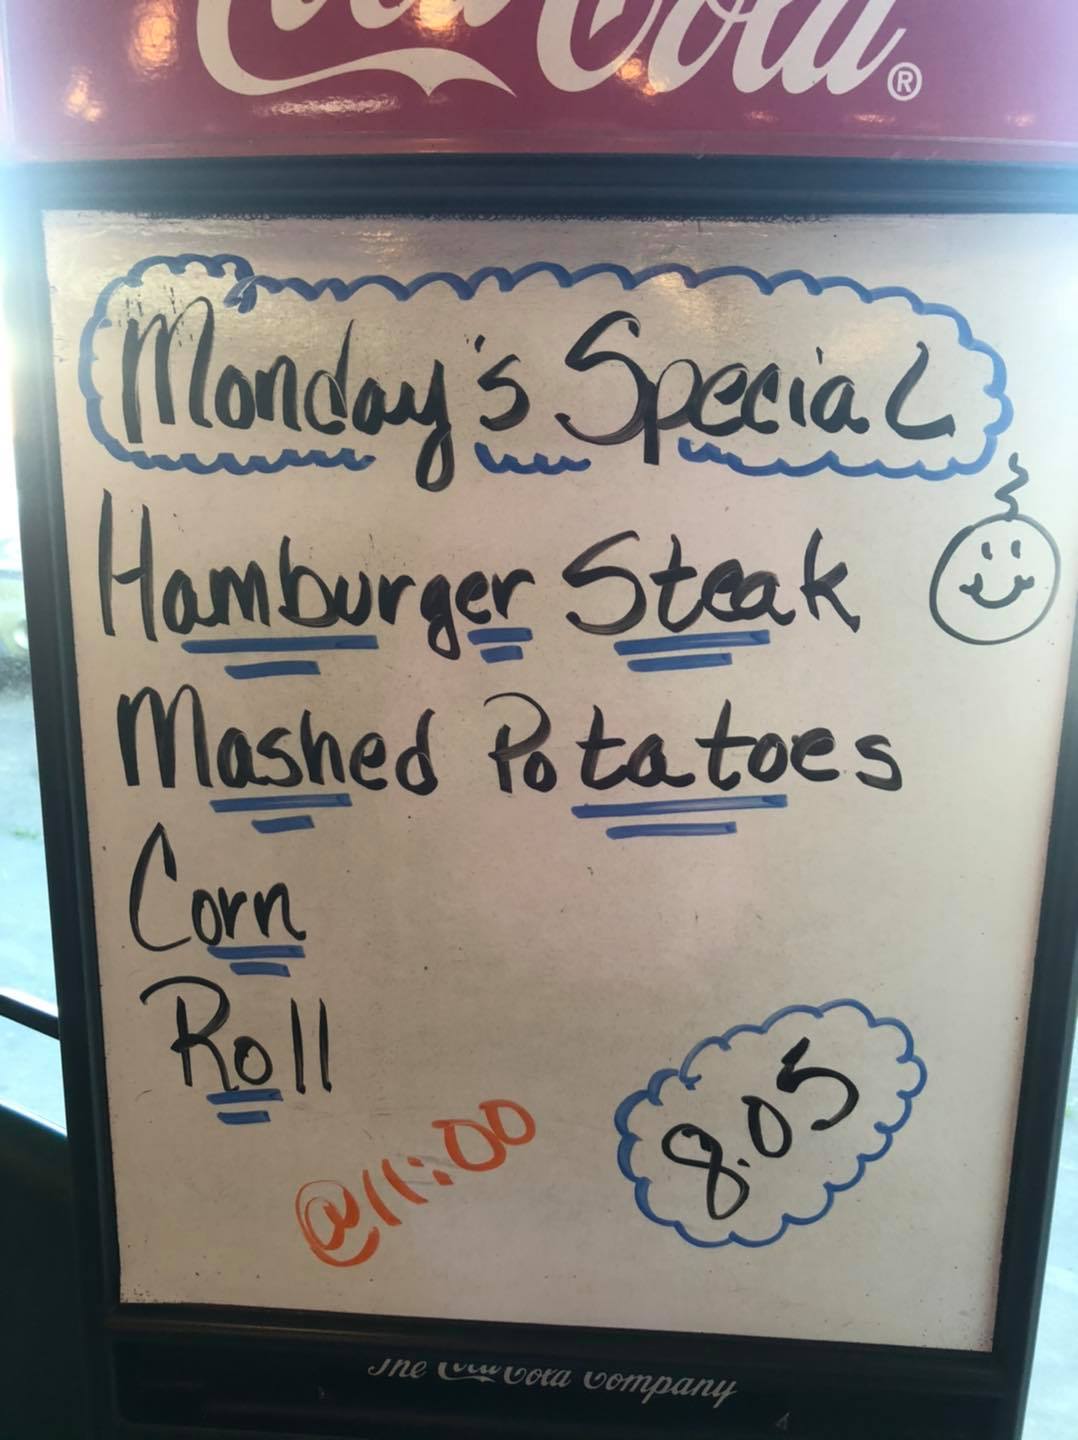 Coca-Cola®
Monday's Special
Hamburger Steak
Mashed Potatoes
Corn
Roll
@11:00
8.05
The Coca-Cola Company